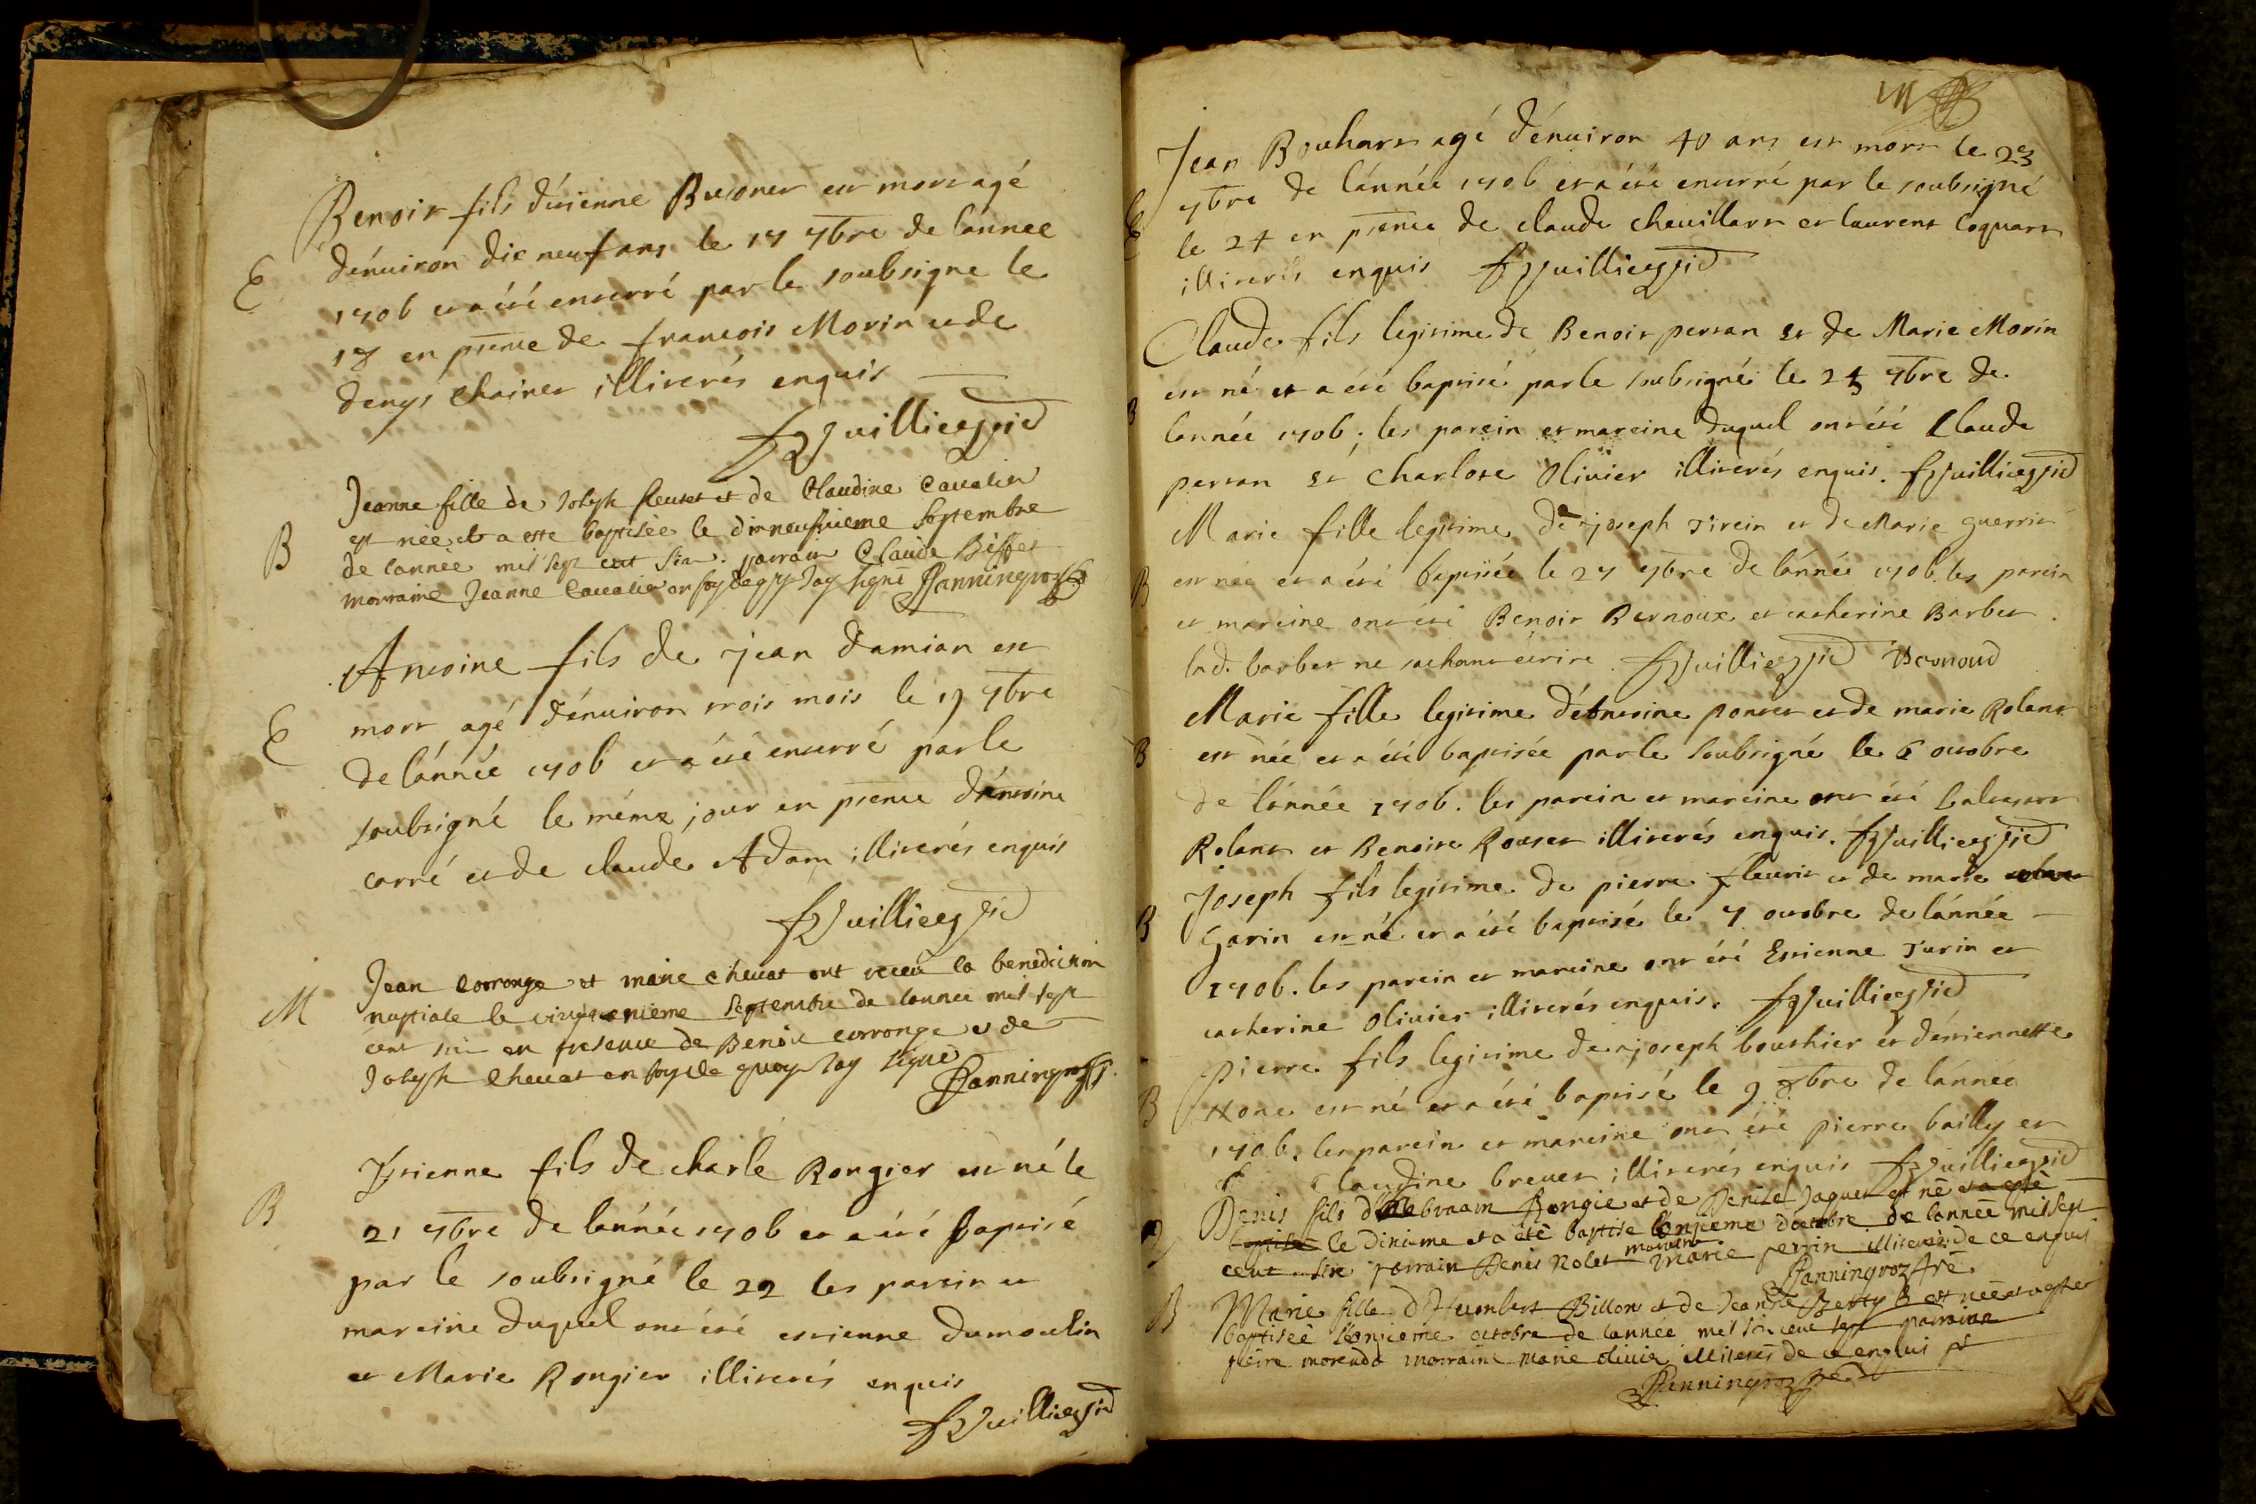 E
Benoit fils d'étienne Buronet est mort agé
d'énuiron dix neuf ans le 17 7bre de l'année
1706 et a été enterré par le soubsigne le
18 en pñce de francois Morin et de
denys Chainet illiterés enquis
B
Jeanne fille de Joseph fleuret et de Claudine Caualier
est née et a este baptisée le dixneufuieme Septembre
de l'année mil sept cent six. parrain Claude Biffet
marraine Jeanne Caualier en foy de quoy Jay signé
E
Antoine fils de jean damian est
mort agé d'énuiron trois mois le 19 7bre
de l'année 1706 et a été enterré par le
soubsigné le même jour en pñce d'Antoine
carré et de claude Adam illiterés enquis
M
Jean corronge et marie cheuat ont receu la benediction
nuptiale le vingt unieme Septembre de lannee mil sept
cent six en presence de Benoit corronge et de
Joseph Cheuat en foy de quoy Jay signé
B
Etienne fils de charle Rongier est né le
21 7bre de l'année 1706 et a été baptisé
par le soubsigné le 22 les parein et
mareine duquel ont été estienne dumoulin
et Marie Rongier illiterés enquis
E
Jean Bouhart agé d'énuiron 40 ans est mort le 23
7bre de l'année 1706 et a été enterré par le soubsigné
le 24 en pñce de claude cheuillart et laurent Coquart
illiterés enquis
B
Claude fils legitime de Benoit perran et de Marie Morin
est né et a été baptisé par le soubsigné le 24 7bre de
lannée 1706; les parein et mareine duquel ont été Claude
perran et Charlote Oliuier illiterés enquis.
B
Marie fille legitime de joseph Tirein et de Marie guerrin
est née et a été baptisée le 27 7bre de l'année 1706. les parein
et mareine ont été Benoit Bernoux et catherine Barbet
lad. barbet ne sachant écrire Bernoud
B
Marie fille legitime d'Antoine pontet et de marie Rolant
est née et a été baptisée par le soubsigné le 6 octobre
de l'année 1706. les parein et mareine ont été
Rolant et Benoite Rouset illiterés enquis.
B
Joseph fils legitime de pierre fleurit et de marie
Garin est né et a été baptisé le 7 octobre de l'année
1706. les parein et mareine ont été Estienne Turin et
catherine Oliuier illiterés enquis.
B
Pierre fils legitime de joseph bouthier et d'estiennette
est né et a été baptisé le 9 8bre de l'année
1706. les parein et mareine ont été pierre bailly et
Claudine breuet illiterés enquis
B
Denis fils d' Rongie et de Denise Jaquet est né et a esté
baptisé le dixieme et a été baptise l'onzieme doctobre de lannée mil sept
cent six parrain Denis Nolet marraine Marie perrin illiterés de ce enquis
B
Marie fille d'Humbert Billon et de Jeanne est née et a estee
baptisée l'onzieme octobre de lannée mil six cent sept parrain
pierre moraud marraine marie oliuier illiterés de ce enquis